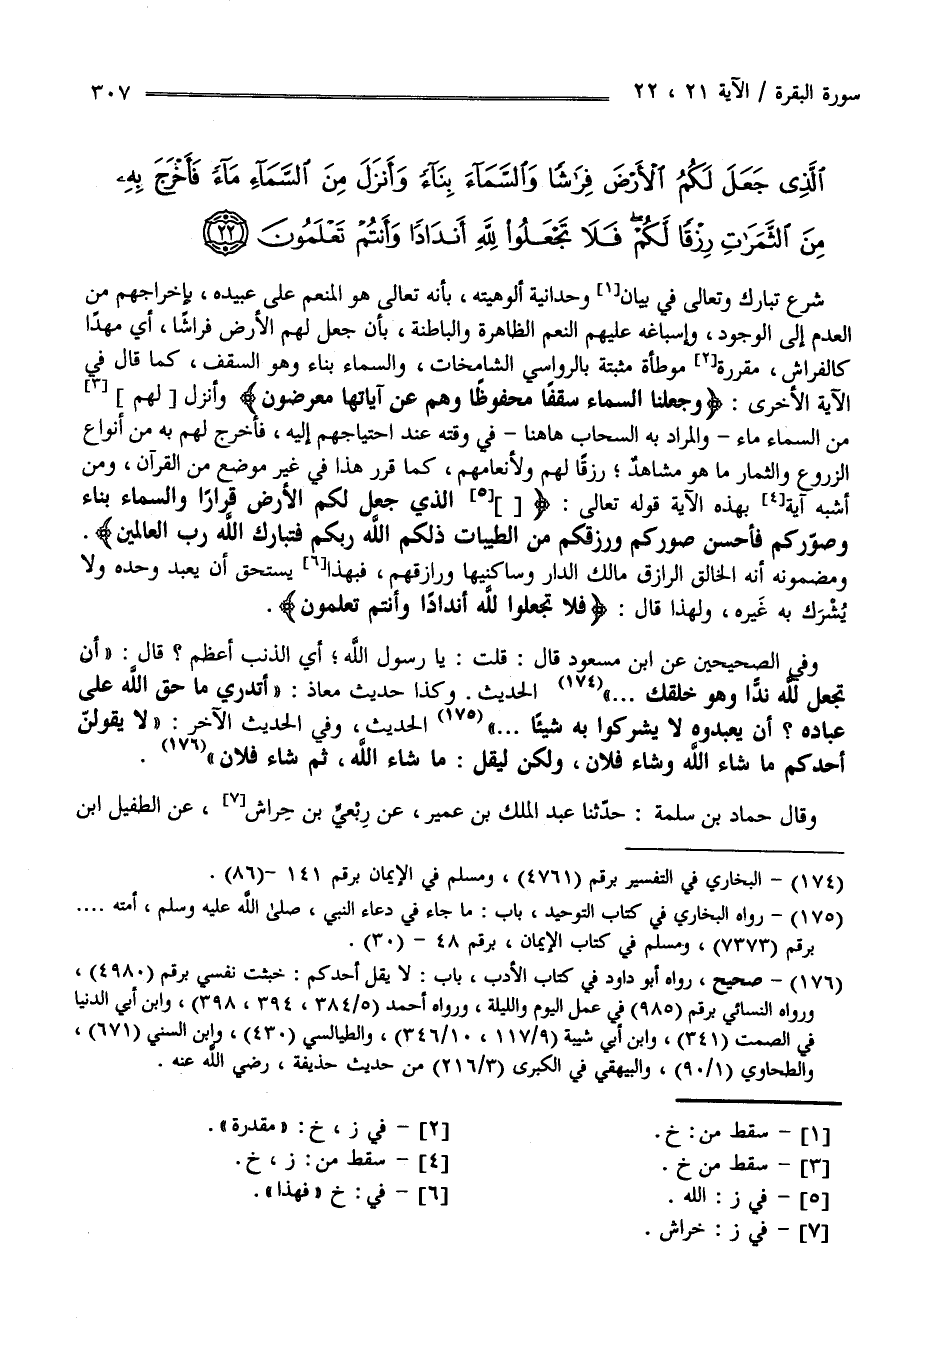 سورة البقرة / الآية ٢١ ، ٢٢ ٣٠٧
ٱلَّذِى جَعَلَ لَكُمُ ٱلْأَرْضَ فِرَٰشًا وَٱلسَّمَآءَ بِنَآءً وَأَنزَلَ مِنَ ٱلسَّمَآءِ مَآءً فَأَخْرَجَ بِهِۦ
مِنَ ٱلثَّمَرَٰتِ رِزْقًا لَّكُمْ ۖ فَلَا تَجْعَلُوا۟ لِلَّهِ أَندَادًا وَأَنتُمْ تَعْلَمُونَ ٢٢
شرع تبارك وتعالى في بيان[١] وحدانية ألوهيته ، بأنه تعالى هو المنعم على عبيده ، بإخراجهم من
العدم إلى الوجود ، وإسباغه عليهم النعم الظاهرة والباطنة ، بأن جعل لهم الأرض فراشًا ، أي مهدًا
كالفراش ، مقررة[٢] موطأة مثبتة بالرواسي الشامخات ، والسماء بناء وهو السقف ، كما قال في
الآية الأخرى : ﴿وجعلنا السماء سقفًا محفوظًا وهم عن آياتها معرضون﴾ وأنزل [ لهم ][٣]
من السماء ماء - والمراد به السحاب هاهنا - في وقته عند احتياجهم إليه ، فأخرج لهم به من أنواع
الزروع والثمار ما هو مشاهدٌ ؛ رزقًا لهم ولأنعامهم ، كما قرر هذا في غير موضع من القرآن ، ومن
أشبه آية[٤] بهذه الآية قوله تعالى : ﴿ [ ][٥] الذي جعل لكم الأرض قرارًا والسماء بناء
وصوّركم فأحسن صوركم ورزقكم من الطيبات ذلكم اللَّه ربكم فتبارك اللَّه رب العالمين﴾ .
ومضمونه أنه الخالق الرازق مالك الدار وساكنيها ورازقهم ، فبهذا[٦] يستحق أن يعبد وحده ولا
يُشْرَك به غَيره ، ولهذا قال : ﴿فلا تجعلوا للَّه أندادًا وأنتم تعلمون﴾ .
وفي الصحيحين عن ابن مسعود قال : قلت : يا رسول اللَّه ؛ أي الذنب أعظم ؟ قال : « أن
تجعل للَّه ندًّا وهو خلقك ...»(١٧٤) الحديث . وكذا حديث معاذ : « أتدري ما حق اللَّه على
عباده ؟ أن يعبدوه لا يشركوا به شيئًا ...»(١٧٥) الحديث ، وفي الحديث الآخر : « لا يقولنّ
أحدكم ما شاء اللَّه وشاء فلان ، ولكن ليقل : ما شاء اللَّه ، ثم شاء فلان »(١٧٦) .
وقال حماد بن سلمة : حدّثنا عبد الملك بن عمير ، عن رِبْعيِّ بن حِراش[٧] ، عن الطفيل ابن
(١٧٤) - البخاري في التفسير برقم (٤٧٦١) ، ومسلم في الإيمان برقم ١٤١ -(٨٦) .
(١٧٥) - رواه البخاري في كتاب التوحيد ، باب : ما جاء في دعاء النبي ، صلى اللَّه عليه وسلم ، أمته ....
برقم (٧٣٧٣) ، ومسلم في كتاب الإيمان ، برقم ٤٨ - (٣٠) .
(١٧٦) - صحيح ، رواه أبو داود في كتاب الأدب ، باب : لا يقل أحدكم : خبثت نفسي برقم (٤٩٨٠) ،
ورواه النسائي برقم (٩٨٥) في عمل اليوم والليلة ، ورواه أحمد (٣٨٤/٥ ، ٣٩٤ ، ٣٩٨) ، وابن أبي الدنيا
في الصمت (٣٤١) ، وابن أبي شيبة (١١٧/٩ ، ٣٤٦/١٠) ، والطيالسي (٤٣٠) ، وابن السني (٦٧١) ،
والطحاوي (٩٠/١) ، والبيهقي في الكبرى (٢١٦/٣) من حديث حذيفة ، رضي اللَّه عنه .
[١] - سقط من: خ. [٢] - في ز ، خ: «مقدرة».
[٣] - سقط من خ . [٤] - سقط من: ز ، خ.
[٥] - في ز : الله . [٦] - في: خ «فهذا».
[٧] - في ز : خراش .